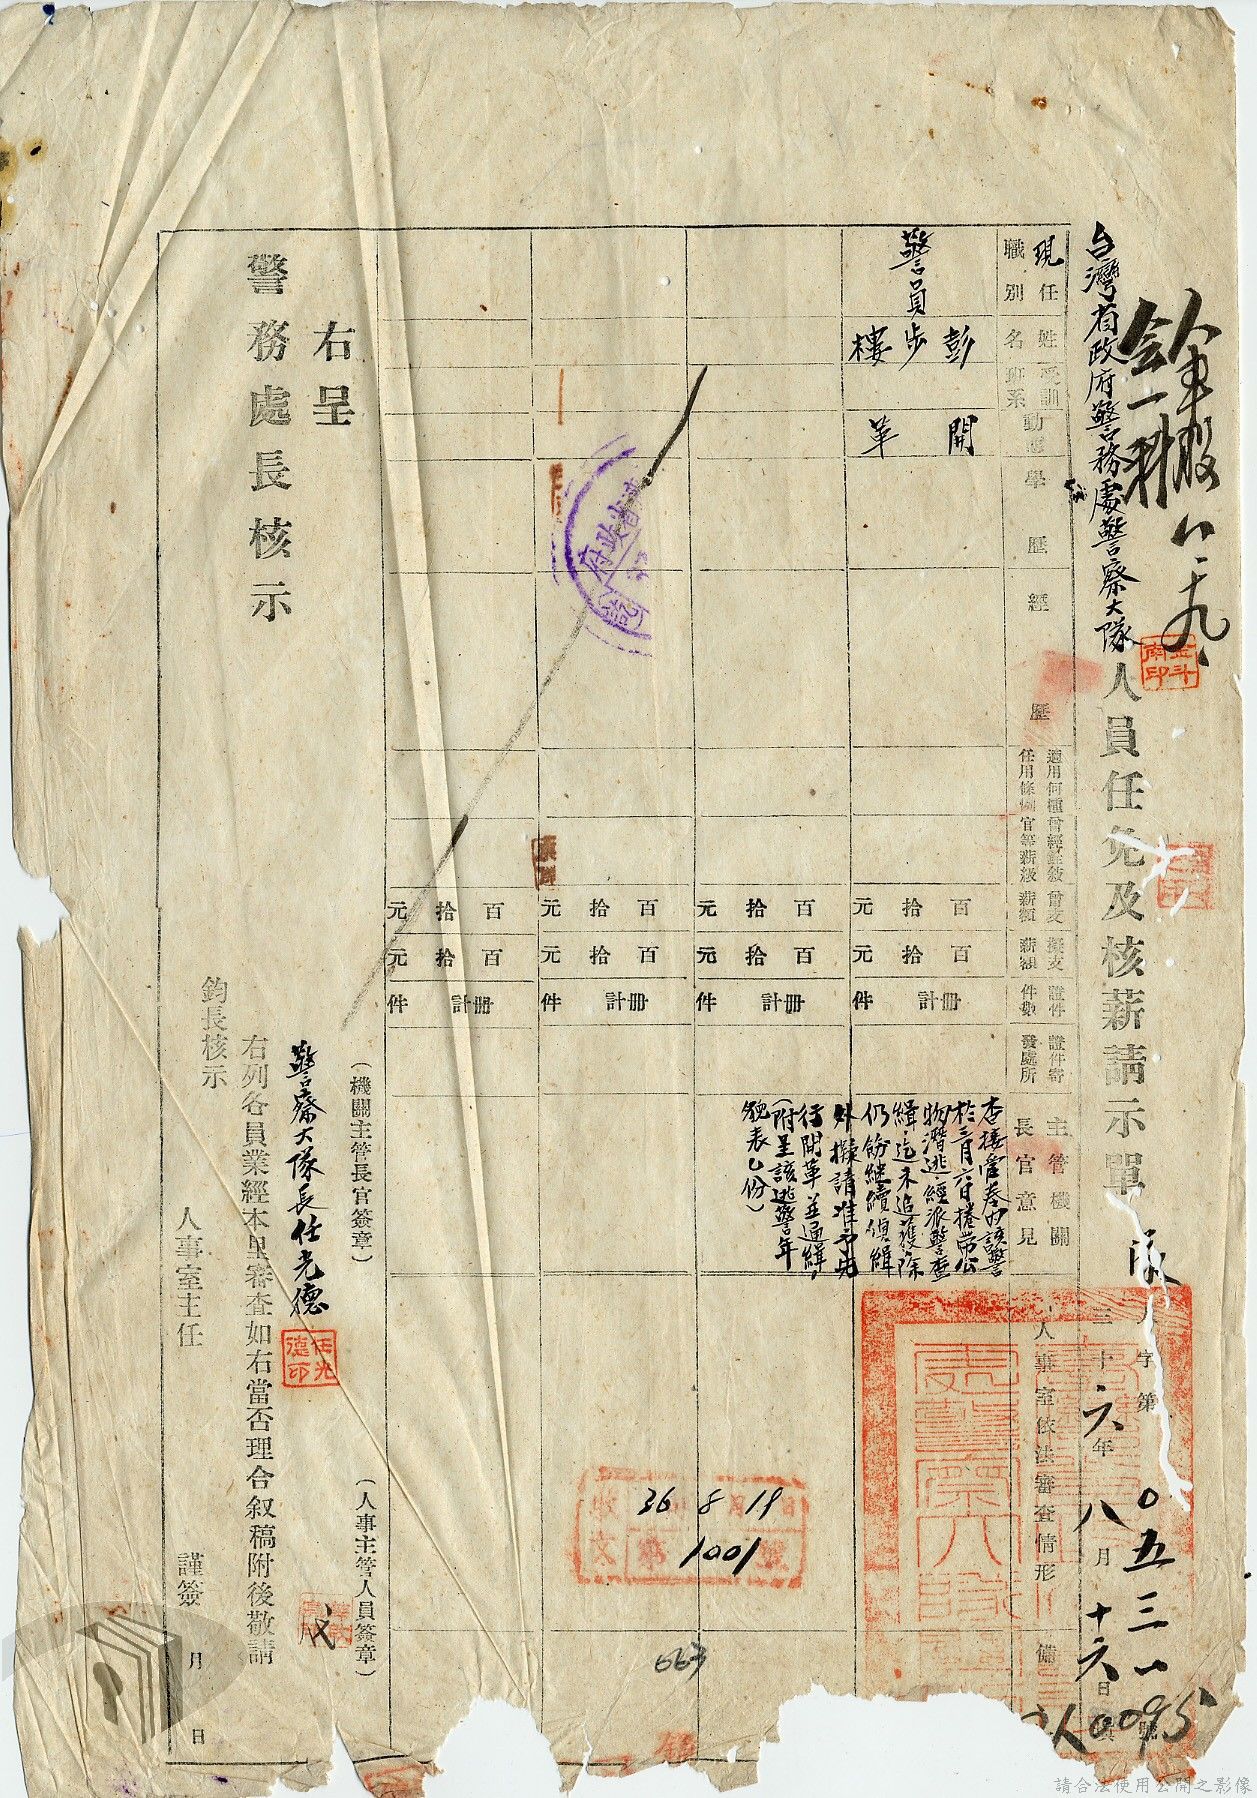 人事股 八、十九、
金一科
台灣省政府警務處警察大隊人員任免及核薪請示單
隊人字第0五三一號
三十六年八月十六日
人0095
現任職別
姓名
受訓班系
動態
學歷
經歷
適用何種任用條例
曾經銓敘官等薪級
曾支薪額
擬支薪額
證件件數
證件寄發處所
主管機關長官意見
人事室依法審查情形
備
警員
彭步樓
開革
百拾元
百拾元
冊計件
查接管卷內該警
於三月六日捲帶公
物潛逃經派警查
緝迄未追獲除
仍飭繼續偵緝
外擬請准予先
行開革並通緝
(附呈該逃警年
貌表乙份)
百拾元
百拾元
冊計件
百拾元
百拾元
冊計件
省政府
36 8 19
收文
1001
663
百拾元
百拾元
冊計件
(機關主管長官簽章)
(人事主管人員簽章)
右呈
警務處長核示
警察大隊長任光德
任光德印
右列各員業經本室審查如右當否理合叙稿附後敬請
鈞長核示
人事室主任
謹簽
月
日
請合法使用公開之影像